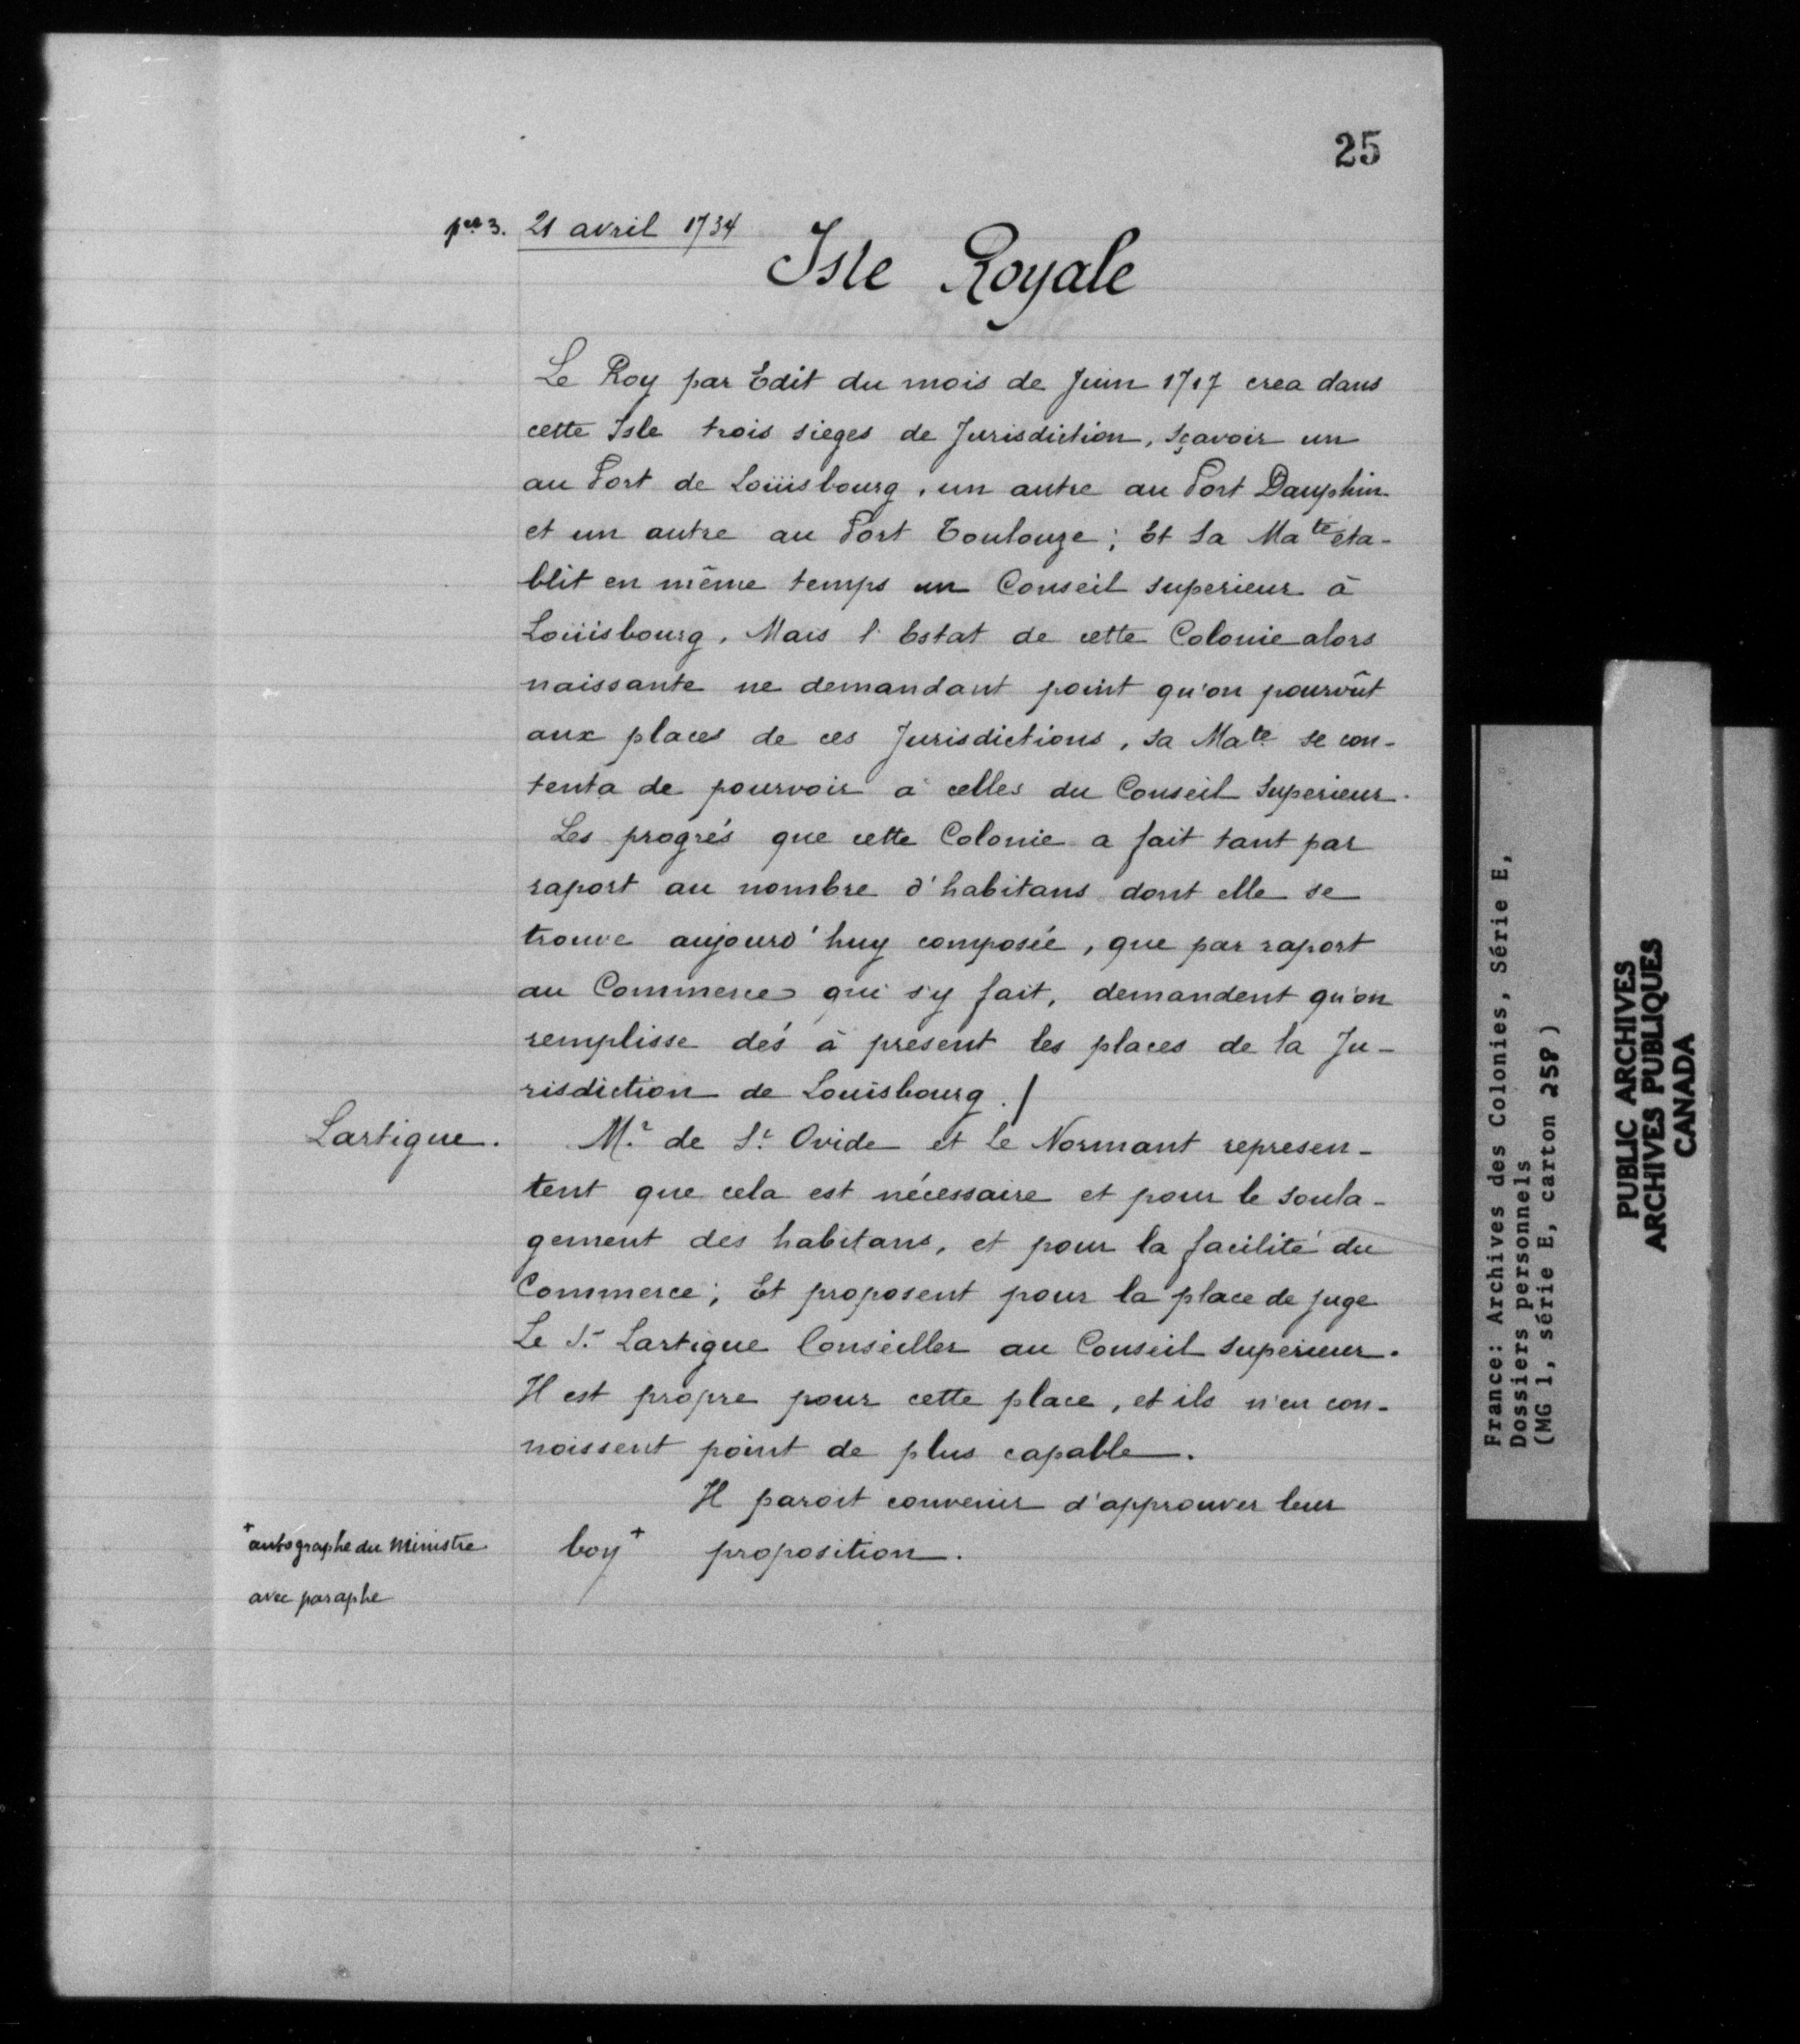 25
pce 3. 21 avril 1734
Isle Royale
Le Roy par Edit du mois de Juin 1717 crea dans
cette Isle trois sieges de Jurisdiction, sçavoir un
au Port de Loüisbourg, un autre au Port Dauphin
et un autre au Port Toulouze; Et Sa Mate éta-
blit en même temps un Conseil superieur à
Loüisbourg. Mais l'Estat de cette Colonie alors
naissante ne demandant point qu'on pourvût
aux places de ces Jurisdictions, Sa Mate se con-
tenta de pourvoir a celles du Conseil Superieur.
Les progrés que cette Colonie a fait tant par
raport au nombre d'habitans dont elle se
trouve aujourd'huy composée, que par raport
au Commerce qui s'y fait, demandent qu'on
remplisse dés à present les places de la Ju-
risdiction de Louisbourg./
Lartigue. Mr. de St. Ovide et Le Normant represen-
tent que cela est nécessaire et pour le soula-
gement des habitans, et pour la facilité du
Commerce; Et proposent pour la place de Juge
Le Sr. Lartigue Conseiller au Conseil Superieur.
Il est propre pour cette place, et ils n'en con-
noissent point de plus capable.
Il paroit convenir d'approuver leur
+ autographe du Ministre bon + proposition.
avec paraphe
France: Archives des Colonies, Série E,
Dossiers personnels
(MG 1, série E, carton 258)
PUBLIC ARCHIVES
ARCHIVES PUBLIQUES
CANADA